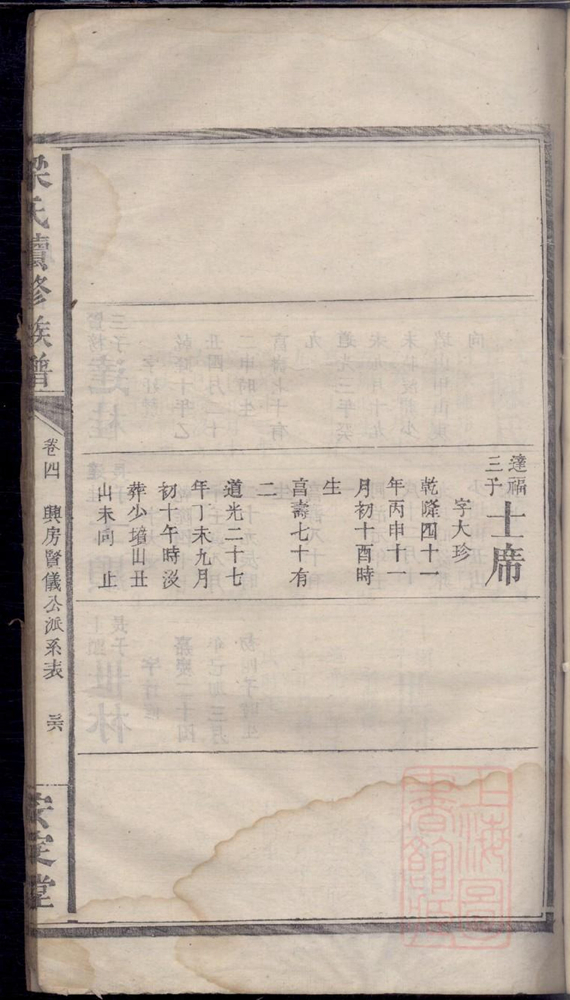 達福
三子
士席
字大珍
乾隆四十一
年丙申十
月初十酉時
生
享壽七十有
二
道光二十七
年丁未九月
初十午時歿
葬少墳山丑
山未向 止
梁氏續修族譜
卷四 興房賢儀公派系表 三六
安定堂